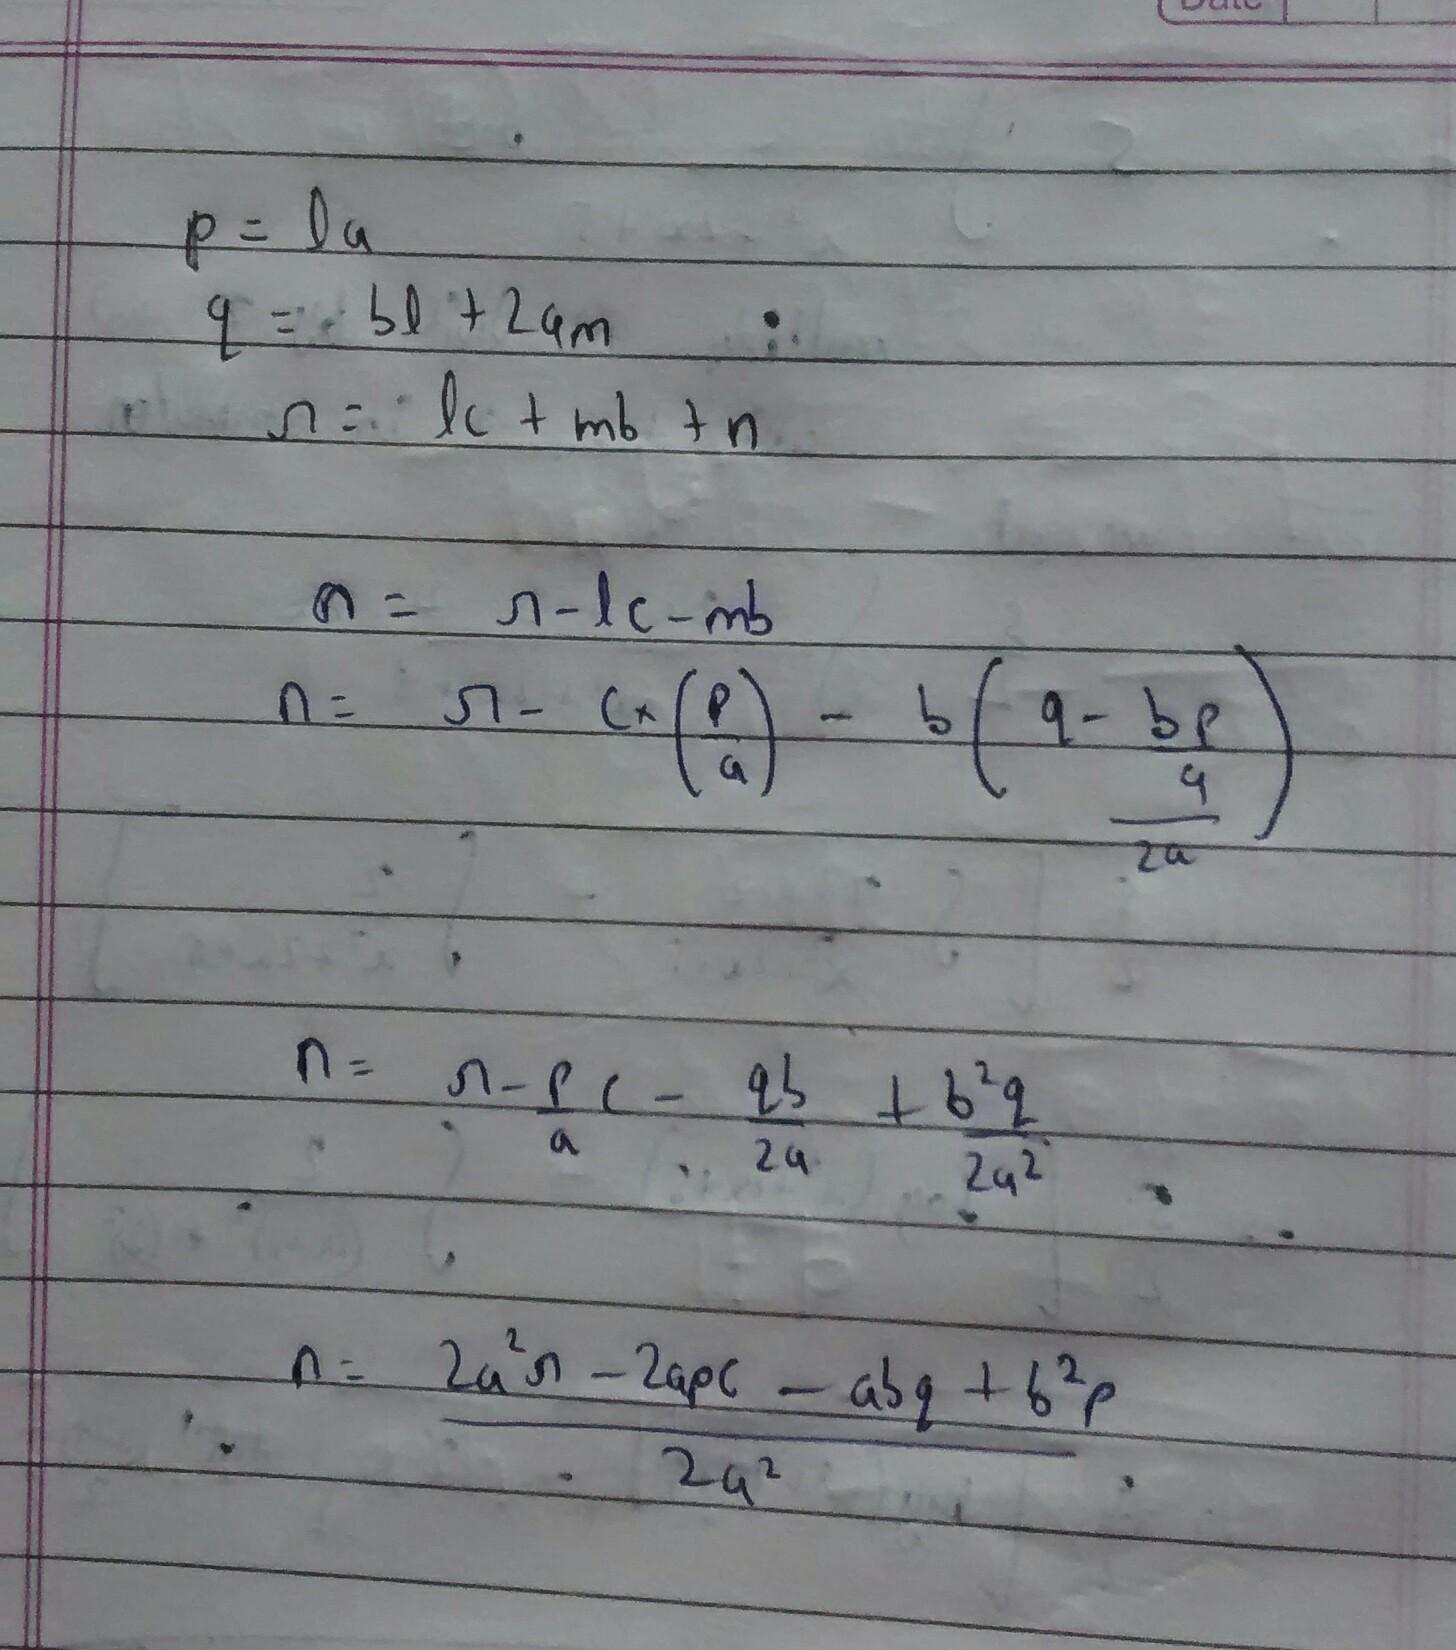 Date
p = la
q = bl + 2am
r = lc + mb + n
n = r - lc - mb
n = r - c × (p/a) - b ((q - bp/a)/2a)
n = r - p/a c - qb/2a + b²q/2a²
n = (2a²r - 2apc - abq + b²p)/2a²